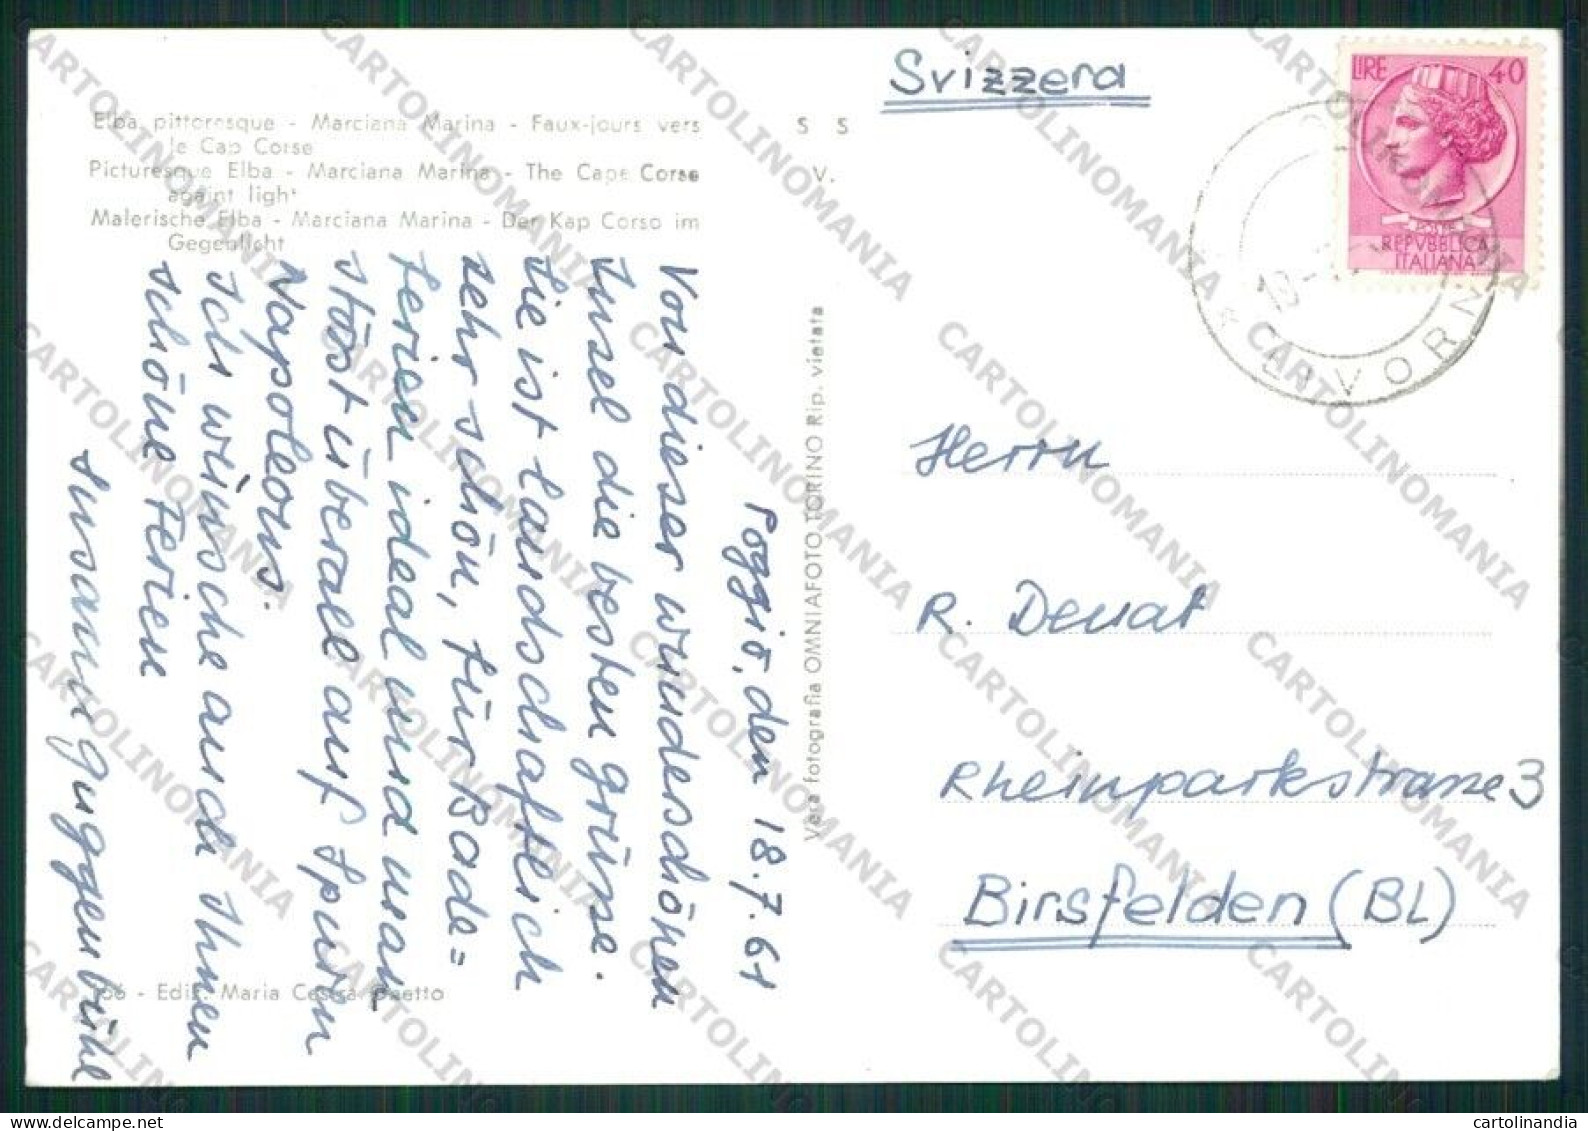 Elba pittoresque - Marciana Marina - Faux-jours vers
le Cap Corse
Picturesque Elba - Marciana Marina - The Cape Corse
againt light
Malerische Elba - Marciana Marina - Der Kap Corso im
Gegenlicht
S S
V.
Poggio, den 18.7.61
Von dieser wunderschönen
Insel die besten Grüsse.
Sie ist landschaftlich
sehr schön, für Bade=
ferien ideal und man
stösst überall auf Spuren
Napoleons.
Ich wünsche auch Ihnen
schöne Ferien
Susanna Guggenbühl
Ediz. Maria
Vera fotografia OMNIAFOTO TORINO Rip. vietata
Svizzera
LIRE 40
POSTE
REPVBBLICA
ITALIANA
LIVORN
Herrn
R. Denat
Rheinparkstrasse 3
Birsfelden (BL)
CARTOLINOMANIA
cartolinandia